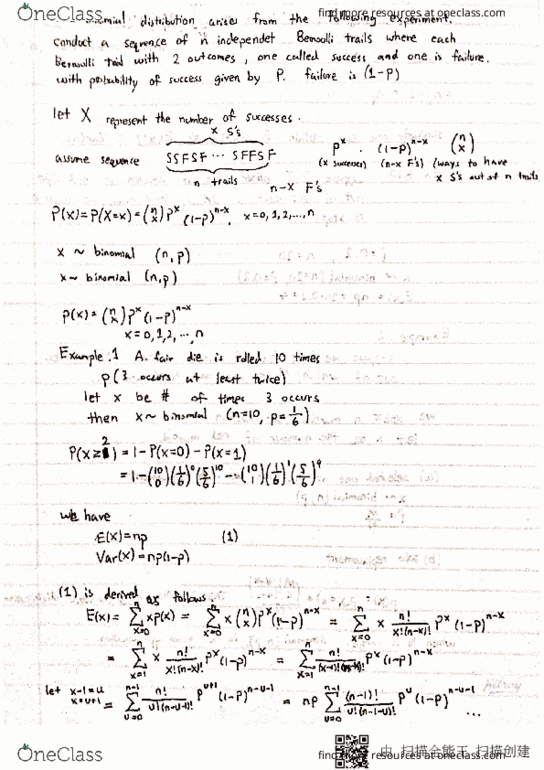 OneClass
find more resources at oneclass.com
nomial distribution arises from the following experiment.
conduct a sequence of n independet Bernoulli trails where each
Bernoulli trail with 2 outcomes, one called success and one is failure.
with probability of success given by P. failure is (1-P)
let X represent the number of successes.
x S's
assume sequence SSFSF ... SFFSF P^x · (1-p)^{n-x} (n x)
(x successes) (n-x F's) (ways to have
n trails n-x F's x S's out of n trails
P(x)=P(X=x)=(n x)p^x (1-p)^{n-x}. x=0,1,2,...,n
x ~ binomial (n,p)
x ~ binomial (n,p)
p(x)=(n x)p^x(1-p)^{n-x}
x=0,1,2,...,n
Example.1 A fair die is rolled 10 times
p(3 occurs at least twice)
let x be # of times 3 occurs
then x ~ binomial (n=10, p=1/6)
P(x≥2) = 1-P(x=0)-P(x=1)
= 1-(10 0)(1/6)^0(5/6)^10 - (10 1)(1/6)^1(5/6)^9
we have
E(x)=np (1)
Var(x)=np(1-p)
(1) is derived as follows
E(x)= Σ_{x=0}^{n} xp(x) = Σ_{x=0}^{n} x (n x) p^x(1-p)^{n-x} = Σ_{x=0}^{n} x n!/x!(n-x)! p^x (1-p)^{n-x}
= Σ_{x=1}^{n} x n!/x!(n-x)! p^x(1-p)^{n-x} = Σ_{x=1}^{n} n!/(x-1)!(n-x)! p^x(1-p)^{n-x}
let x-1=u
x=u+1 = Σ_{u=0}^{n-1} n!/u!(n-u-1)! p^{u+1}(1-p)^{n-u-1} = np Σ_{u=0}^{n-1} (n-1)!/u!(n-1-u)! p^u(1-p)^{n-u-1} ...
Hilroy
OneClass
find more resources at oneclass.com
扫描全能王 扫描创建